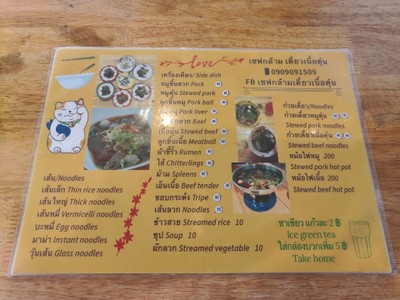 love
เส้น/Noodles
เส้นเล็ก Thin rice noodles
เส้นใหญ่ Thick noodles
เส้นหมี่ Vermicelli noodles
บะหมี่ Egg noodles
มาม่า Instant noodles
วุ้นเส้น Glass noodles
เครื่องเคียง/ Side dish
หมูชิ้นลวก Pork
หมูตุ๋น Stewed pork
ลูกชิ้นหมู Pork ball
Pork liver
Beef
เนื้อตุ๋น Stewed beef
ลูกชิ้นเนื้อ Meatball
ผ้าขี้ริ้ว Rumen
ไส้ Chitterlings
ม้าม Spleens
เอ็นเนื้อ Beef tender
ขอบกระด้ง Tripe
เส้นลวก Noodles
ข้าวสวย Streamed rice 10
ซุป Soup 10
ผักลวก Streamed vegetable 10
เชฟกล้าม เตี๋ยวเนื้อตุ๋น
0909091509
FB เชฟกล้ามเตี๋ยวเนื้อตุ๋น
ก๋วยเตี๋ยว/Noodles
ก๋วยเตี๋ยวหมูตุ๋น
Stewed pork noodles
ก๋วยเตี๋ยวเนื้อตุ๋น
Stewed beef noodles
หม้อไฟหมู 200
Stewed pork hot pot
หม้อไฟเนื้อ 200
Stewed beef hot pot
ชาเขียว แก้วละ 2 ฿
Ice green tea
ใส่กล่องบวกเพิ่ม 5 ฿
Take home